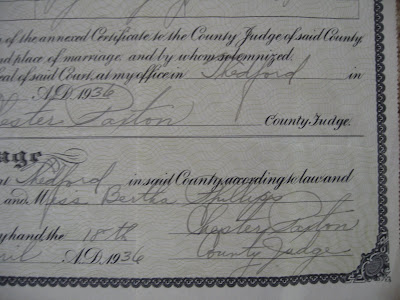 n of the annexed Certificate to the County Judge of said County
nd place of marriage, and by whom solemnized.
eal of said Court, at my office in Thedford in
A.D. 1936
hester Paxton
County Judge.
age
at Thedford in said County, according to law and
and Miss Bertha Phillips
y hand, the 18th Chester Paxton
ril A.D. 1936 County Judge